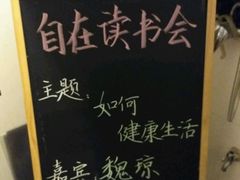 自在读书会
主题:如何
健康生活
嘉宾:魏琼